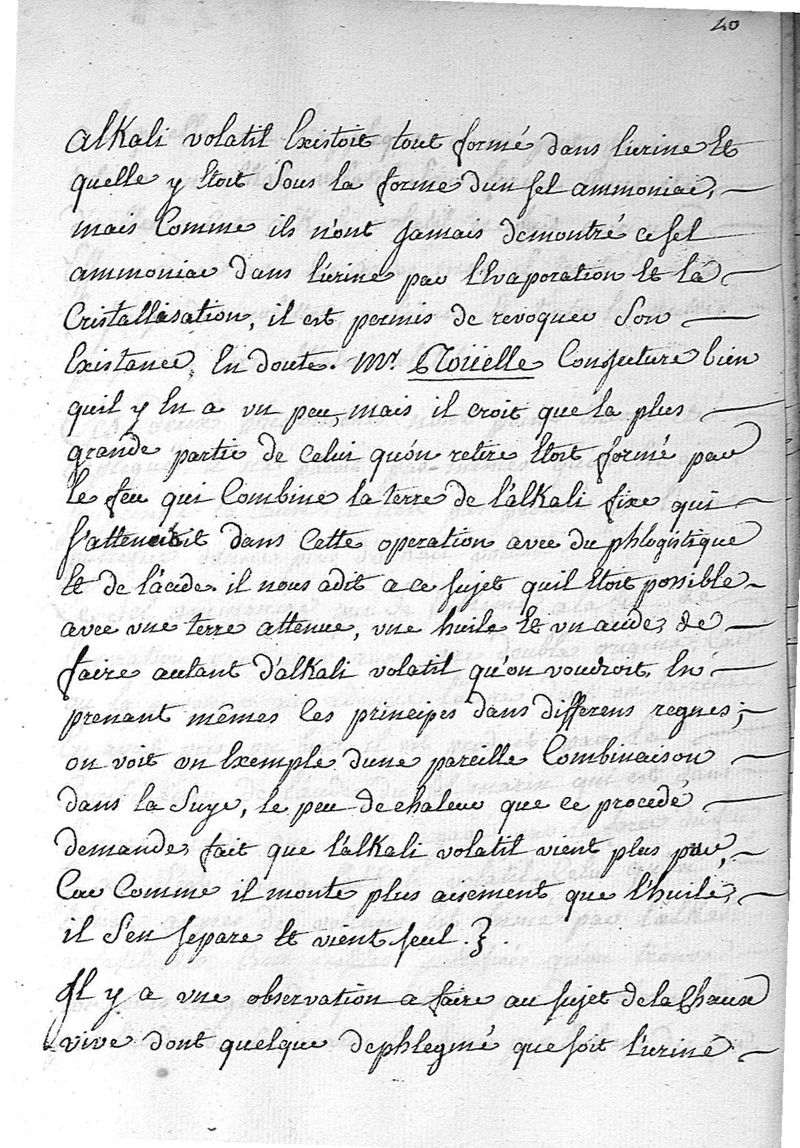 40
alkali volatil Existoit tout formé dans l'urine Et
quelle y Etoit Sous la forme d'un sel ammoniac,
mais Comme ils n'ont jamais demontré ce sel
ammoniac dans l'urine par l'Evaporation Et la
Cristallisation, il est permis de revoquer Son
Existence, En doute. Mr. Roüelle Conjecture bien
quil y En a vn peu, mais il croit que la plus
grande partie de Celui qu'on retire Etoit formé par
le feu qui Combine la terre de l'alkali fixe qui
s'attenüoit dans Cette operation avec du phlogistique
Et de l'acide. il nous a dit a ce sujet quil Etoit possible
avec vne terre attenue, vne huile Et vn acide, de
faire autant d'alkali volatil qu'on voudroit, En
prenant mêmes les principes dans differens regnes;
on voit vn Exemple dune pareille Combinaison
dans la Suye, le peu de chaleur que ce procedé
demande, fait que l'alkali volatil vient plus pur,
Car Comme il monte plus aisement que l'huile,
il S'en separe Et vient seul.
Il y a vne observation a faire au sujet de la Chaux
vive dont quelque dephlegmé que soit l'urine